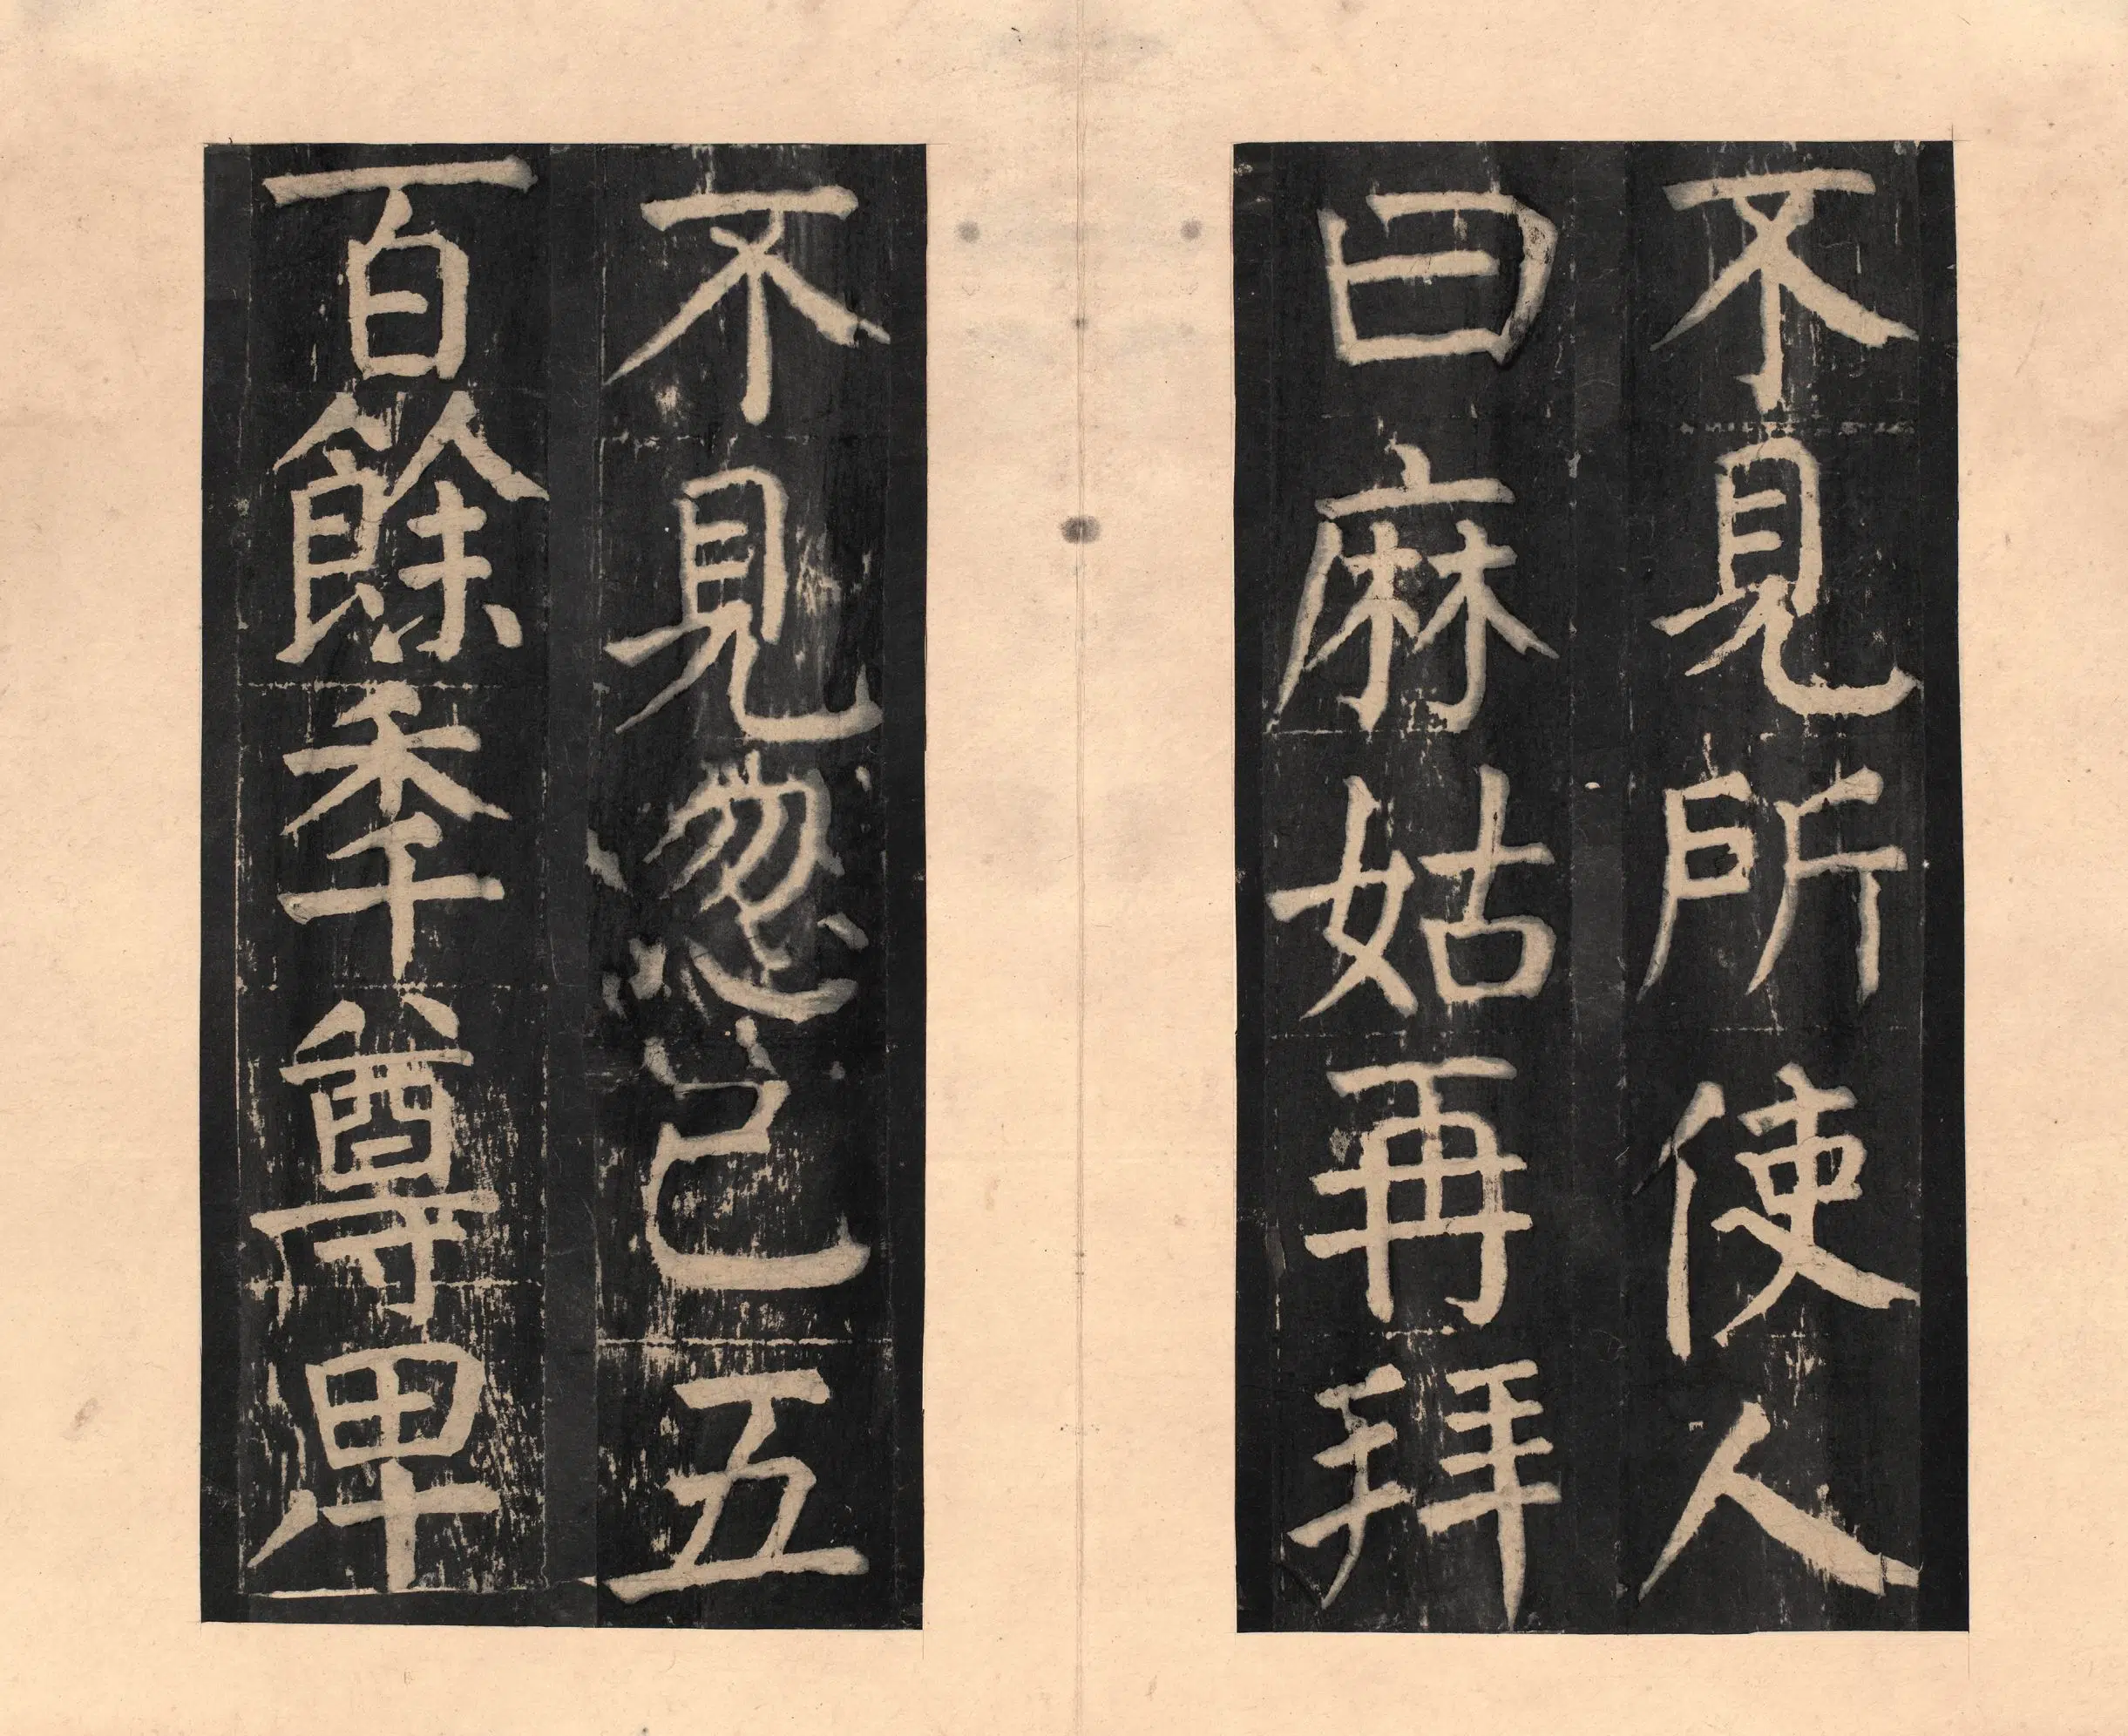 不見所使人
曰麻姑再拜
不見忽已五
百餘秊尊卑